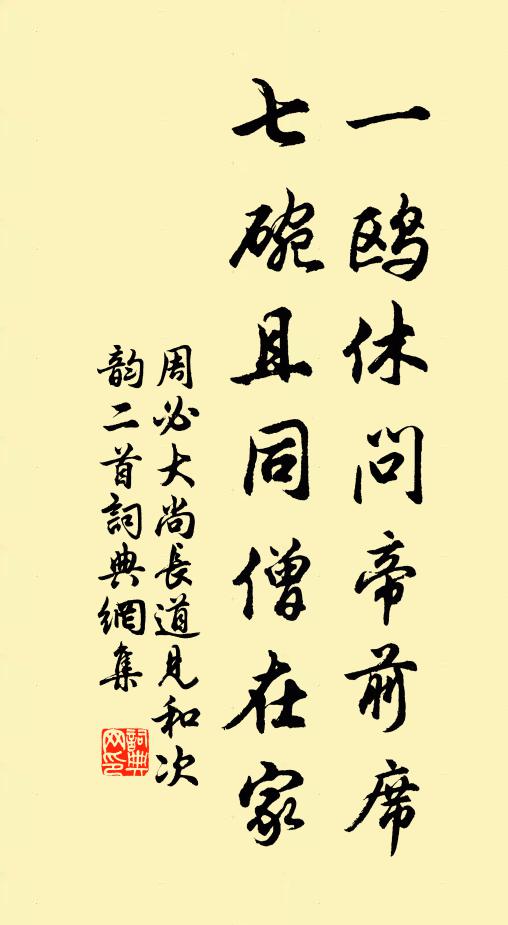 一鸥休问帝前席
七碗且同僧在家
周必大尚長道見和次
韵二首詞典網集
詞典网印